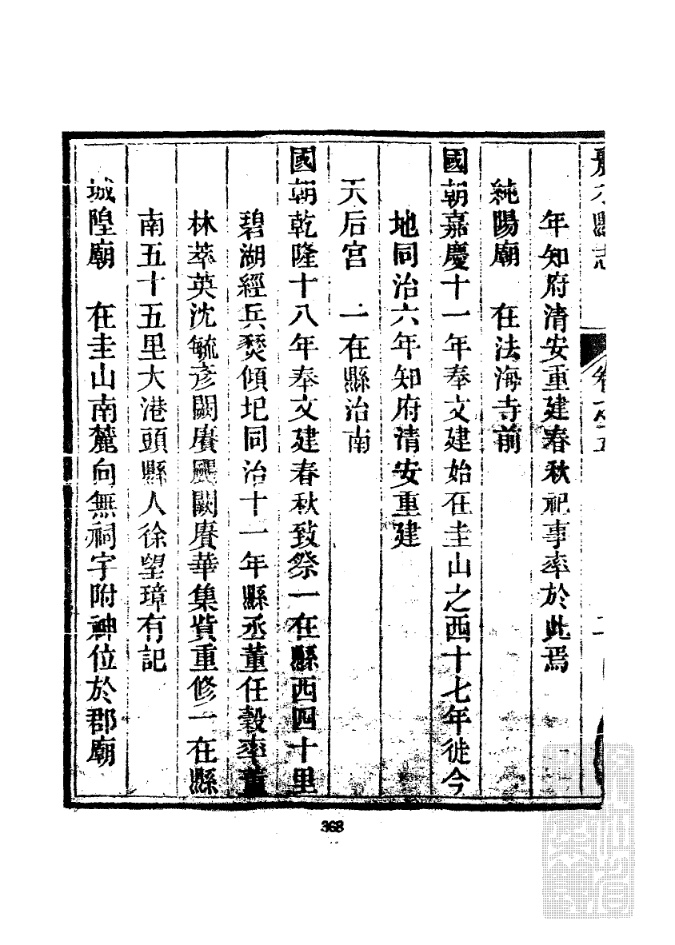 縣志
卷之五
年知府清安重建春秋祀事率於此焉
純陽廟　在法海寺前
國朝嘉慶十一年奉文建始在圭山之西十七年徙今
地同治六年知府清安重建
天后宮　一在縣治南
國朝乾隆十八年奉文建春秋致祭一在縣西四十里
碧湖經兵燹傾圮同治十一年縣丞董任穀率董
林萃英沈毓彥闕賡颺闕賡華集貲重修一在縣
南五十五里大港頭縣人徐望璋有記
城隍廟　在圭山南麓向無祠宇附神位於郡廟
368